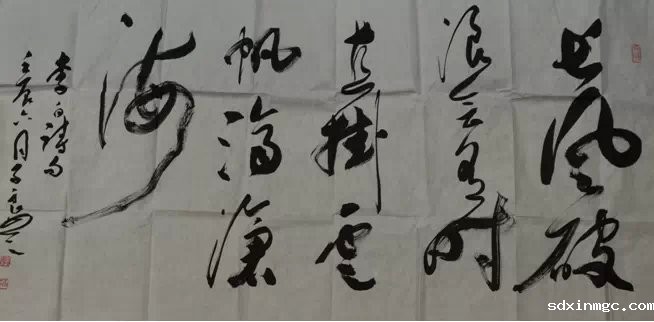 长风破
浪会有时
直挂云
帆济沧
海
李白诗句
壬辰六月
sdxinmgc.com